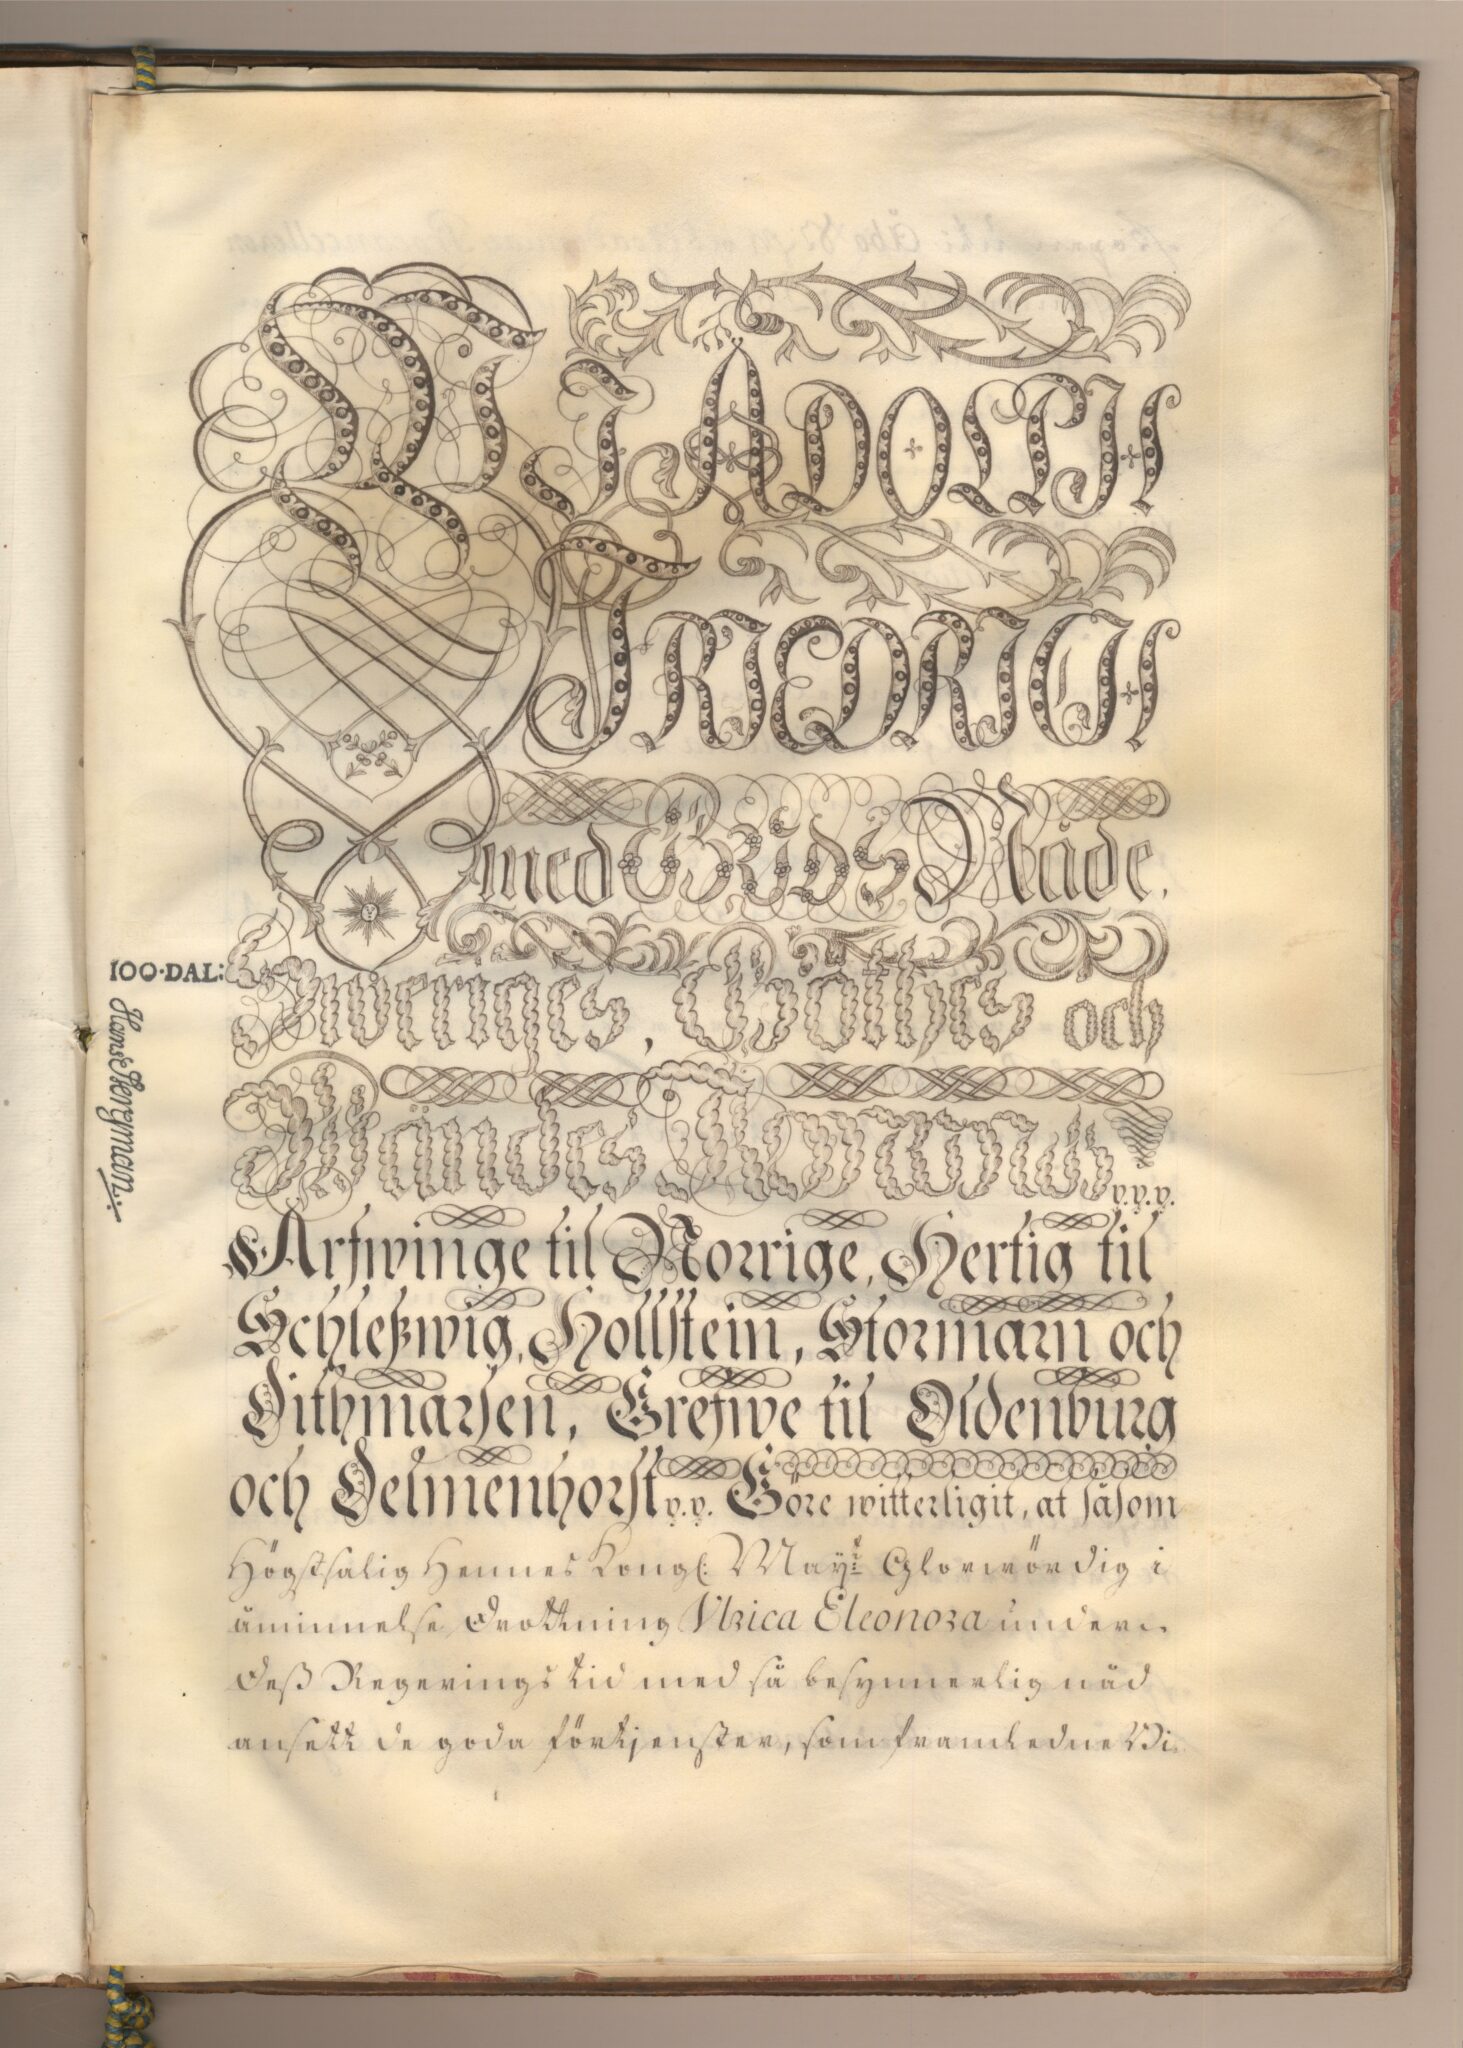 WJ ADOLPH
FRIEDRICH
med Guds Nåde,
Sweriges, Göthes och
Wändes Konung p.p.p.
Arfwinge til Norrige, Hertig til
Schleßwig, Hollstein, Stormarn och
Dithmarsen, Grefwe til Oldenburg
och Delmenhorst p.p. Göre witterligit, at såsom
Högstsalig Hennes Kongl: May:t Glorwördig i
åminnelse Drottning Ulrica Eleonora under
Deß Regerings tid med så besynnerlig nåd
ansett de goda förtjenster, som framledne Bi
100·DAL: